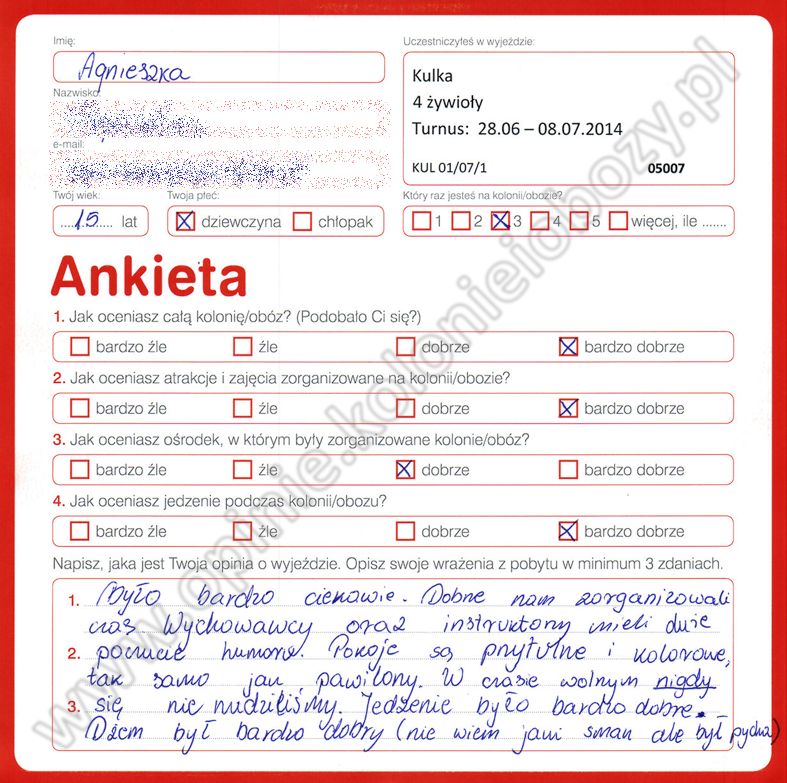 Imię:
Agnieszka
Nazwisko:
e-mail:
Twój wiek:
15 lat
Twoja płeć:
dziewczyna chłopak
Uczestniczyłeś w wyjeździe:
Kulka
4 żywioły
Turnus: 28.06 – 08.07.2014
KUL 01/07/1 05007
Który raz jesteś na kolonii/obozie?
1 2 3 4 5 więcej, ile .......
Ankieta
1. Jak oceniasz całą kolonię/obóz? (Podobało Ci się?)
bardzo źle źle dobrze bardzo dobrze
2. Jak oceniasz atrakcje i zajęcia zorganizowane na kolonii/obozie?
bardzo źle źle dobrze bardzo dobrze
3. Jak oceniasz ośrodek, w którym były zorganizowane kolonie/obóz?
bardzo źle źle dobrze bardzo dobrze
4. Jak oceniasz jedzenie podczas kolonii/obozu?
bardzo źle źle dobrze bardzo dobrze
Napisz, jaka jest Twoja opinia o wyjeździe. Opisz swoje wrażenia z pobytu w minimum 3 zdaniach.
1. Było bardzo ciekawie. Dobrze nam zorganizowali
czas Wychowawcy oraz instruktorzy mieli duże
2. poczucie humoru. Pokoje są przytulne i kolorowe,
tak samo jak pawilony. W czasie wolnym nigdy
3. się nie nudziliśmy. Jedzenie było bardzo dobre.
Dżem był bardzo dobry (nie wiem jaki smak ale był pycha)
www.opinie.kolonieiobozy.pl